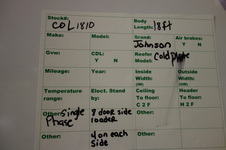 Stock#: Body
COL1810 Length: 18ft
Make: Model: Brand: Air brakes:
Johnson Y N
Gvw: CDL: Reefer Cold Plate
Y N Model:
Mileage: Year: Inside Outside
Width: Width:
Temp Elect. Stand Ceiling Header
Range: by: To floor: To floor:
C 2 F H 2 F
Other: Single 8 door side Other:
Phase loader
Other: 4 on each Other:
side